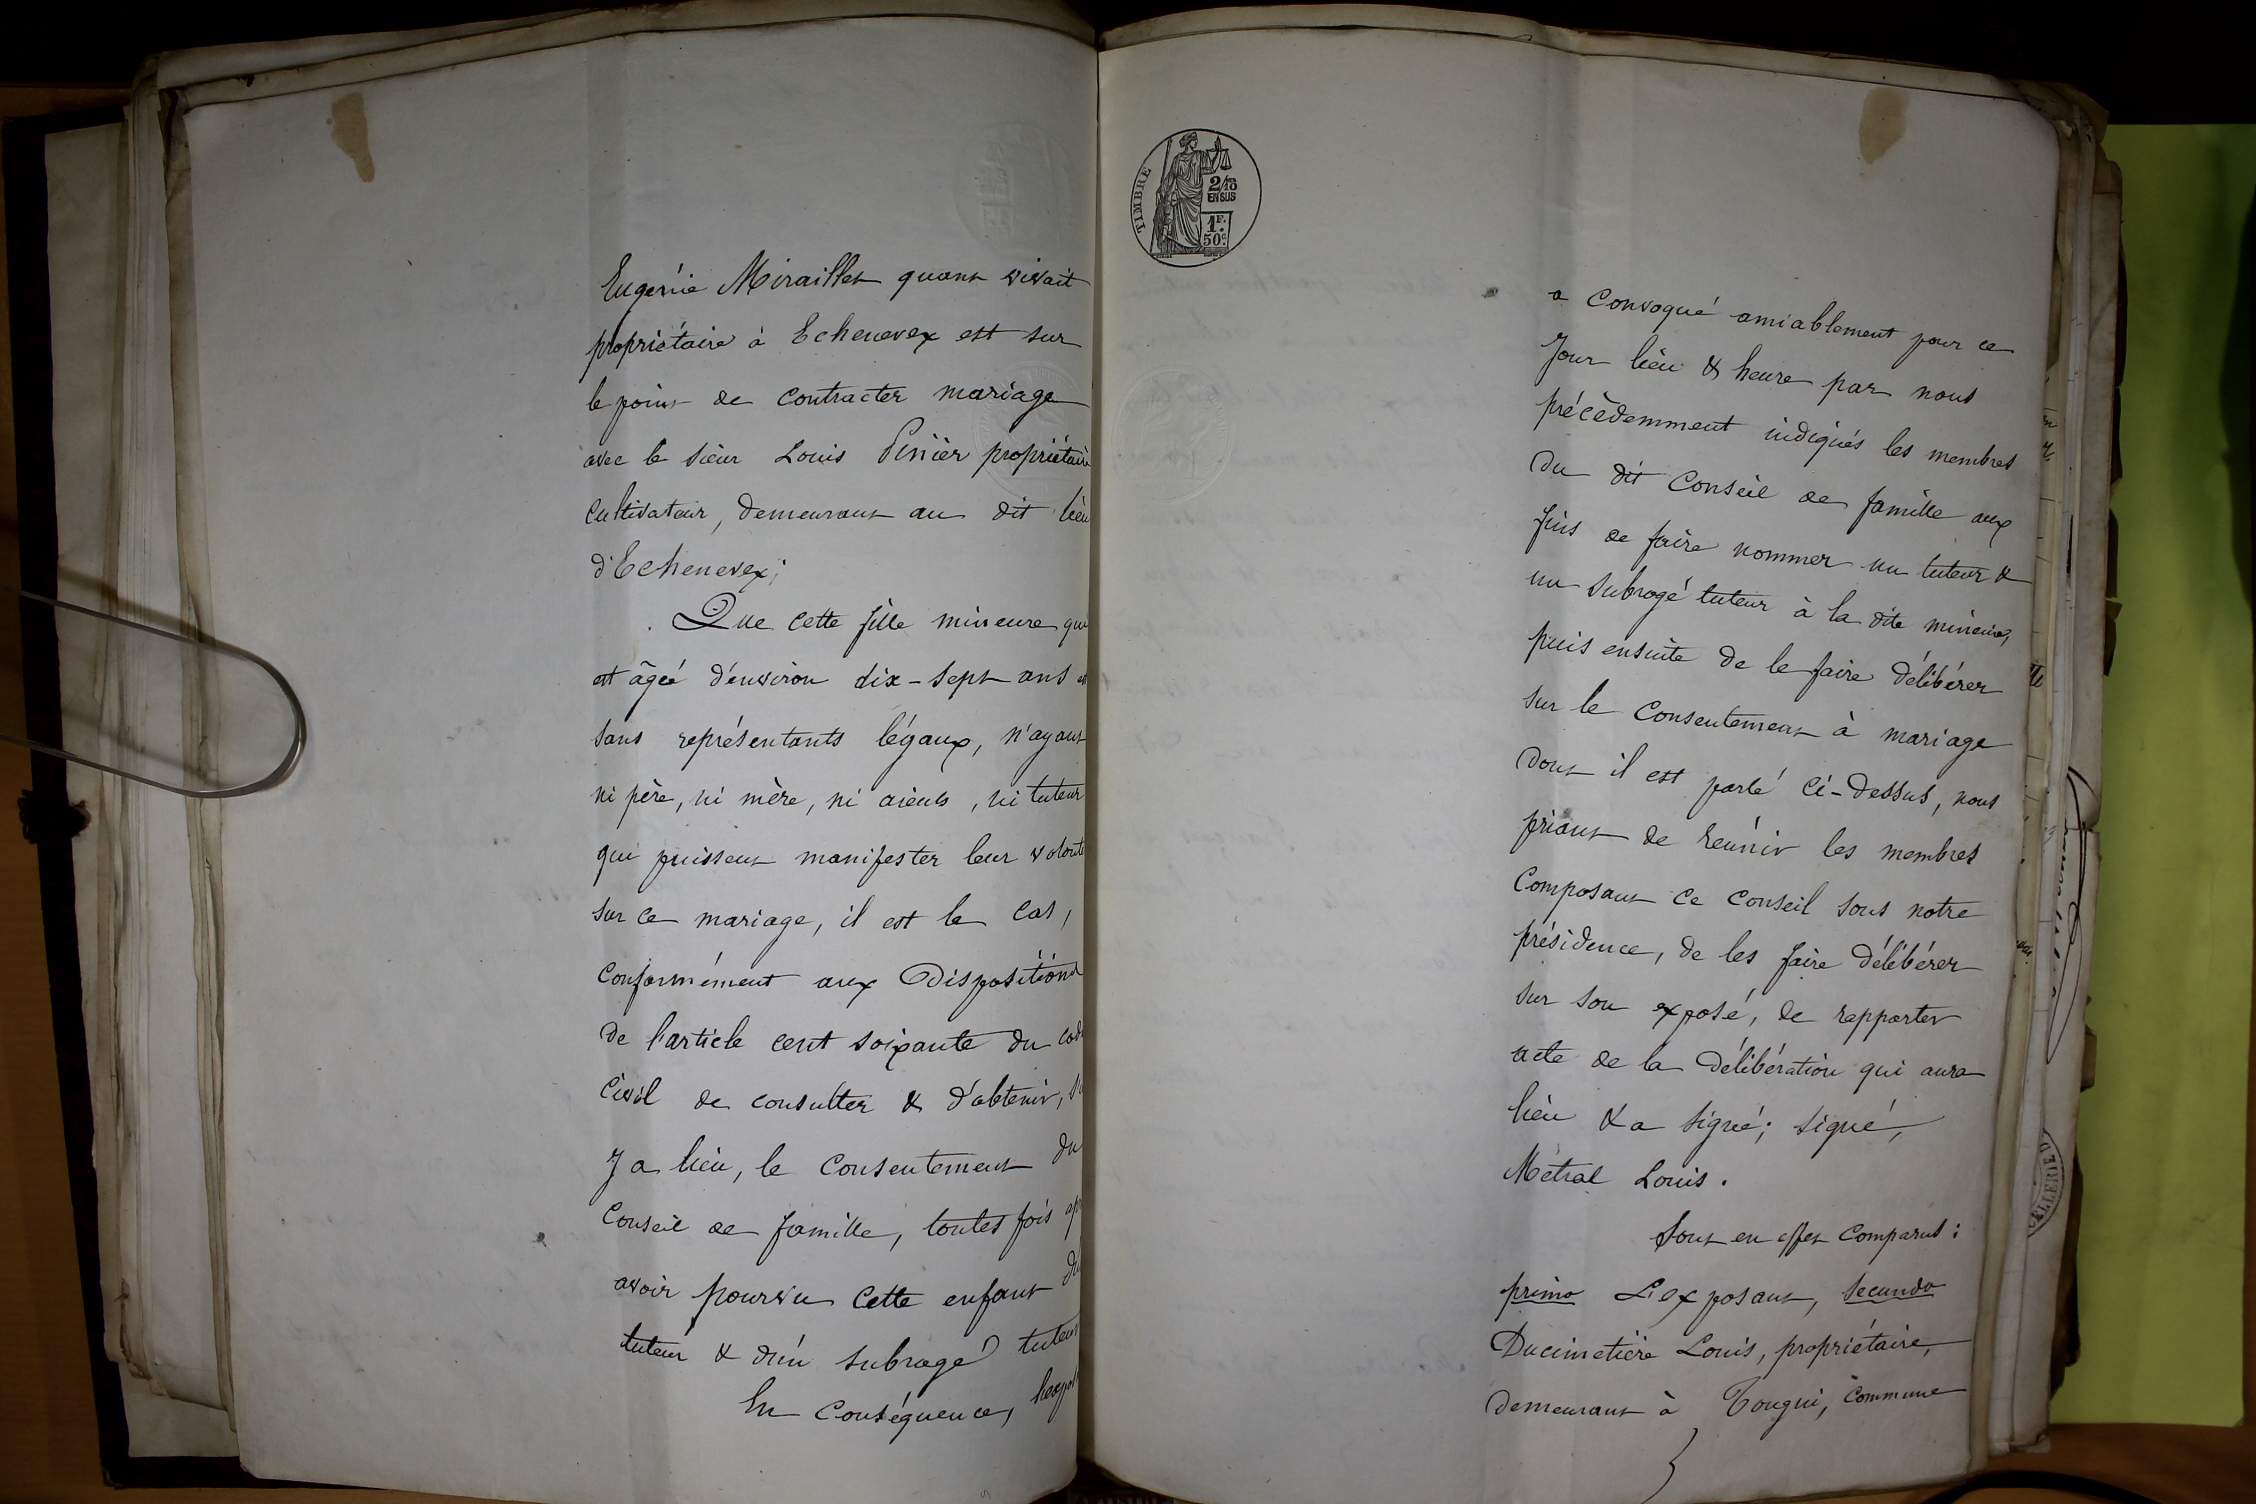 Eugénie Miraillet quant vivait
propriétaire à Echenevex est sur
le point de contracter mariage
avec le sieur Louis Pinier propriétaire
cultivateur, demeurant au dit lieu
d'Echenevex;
Que cette fille mineure qui
est âgée d'environ dix-sept ans est
sans représentants légaux, n'ayant
ni père, ni mère, ni aïeuls, ni tuteur
qui puissent manifester leur volonté
sur ce mariage, il est le cas,
conformément aux dispositions
de l'article cent soixante du code
civil de consulter & d'obtenir, s'
y a lieu, le consentement du
Conseil de famille, toutes fois
avoir pourvu cette enfant
tuteur & d'un subrogé tuteur
En conséquence,
TIMBRE
2/10
EN SUS
1F.
50c.
a convoqué amiablement pour ce
jour lieu & heure par nous
précédemment indiqués les membres
du dit Conseil de famille aux
fins de faire nommer un tuteur &
un subrogé tuteur à la dite mineure,
puis ensuite de le faire délibérer
sur le consentement à mariage
dont il est parlé ci-dessus, nous
priant de réunir les membres
composant ce conseil sous notre
présidence, de les faire délibérer
sur son exposé, de rapporter
acte de la délibération qui aura
lieu & a signé; signé,
Métral Louis.
Sont en effet comparus:
primo L'exposant, secundo
Ducimetière Louis, propriétaire,
demeurant à Tougin, commune